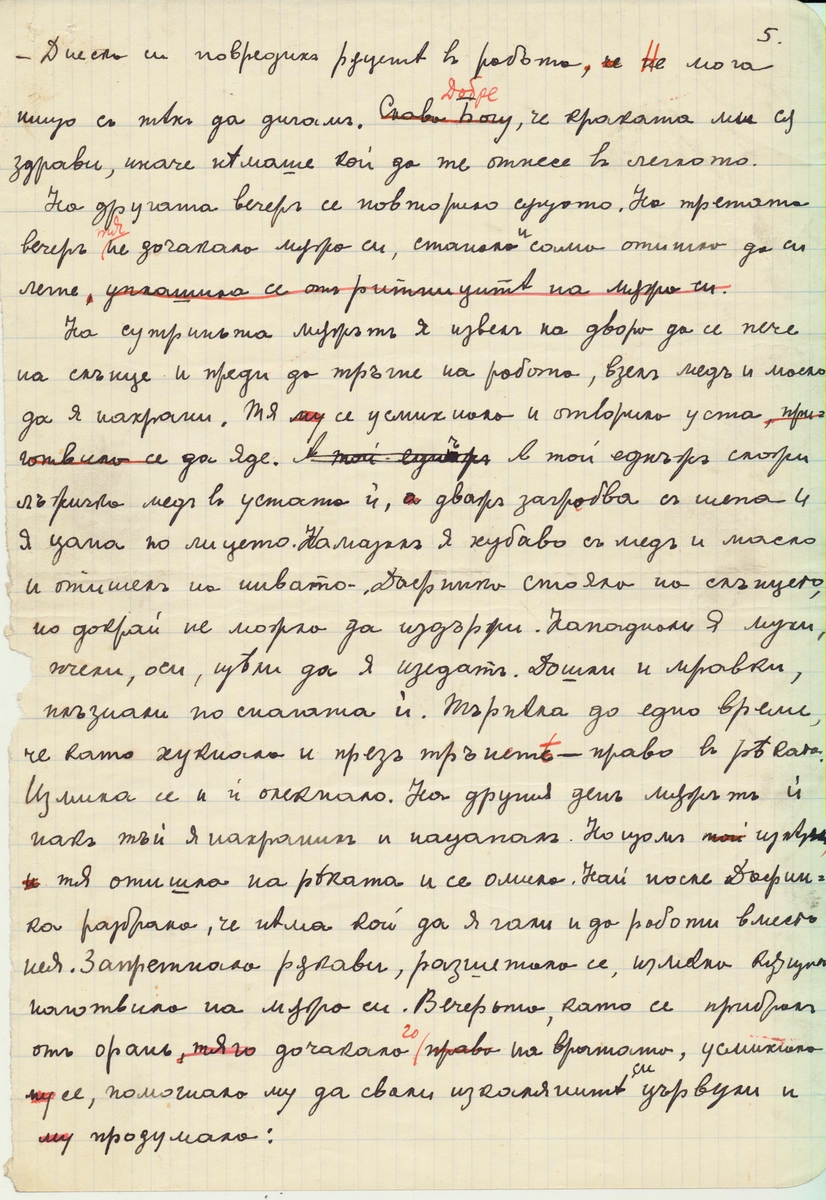 5.
— Днеска си повредихъ рѫцетѣ въ работа, че Не мога
нищо съ тѣхъ да дигамъ. Слава Богу, Добре че краката ми сѫ
здрави, иначе нѣмаше кой да те отнесе въ леглото.
На другата вечерь се повторило сѫщото. На третата
вечерь тя не дочакала мѫжа си, станала и сама отишла да си
легне, уплашила се отъ ритницитѣ на мѫжа си.
На сутриньта мѫжътъ я извелъ на двора да се пече
на слънце и преди да тръгне на работа, взелъ медъ и масло
да я нахрани. Тя му се усмихнала и отворила уста, при-
готвила се да яде. А той еднъжъ А той еднъжъ сложи
лъжичка медъ въ устата ѝ, а дважъ загребва съ шепа и
я цапа по лицето. Намазалъ я хубаво съ медъ и масло
и отишелъ на нивата. Дафинка стояла на слънцето,
но докрай не можла да издържи. Нападнали я мухи,
пчели, оси, щѣли да я изедатъ. Дошли и мравки,
плъзнали по снагата ѝ. Търпѣла до едно време,
че като хукнала и презъ трънетѣ — право въ рѣката.
Измила се и ѝ олекнало. На другия день мѫжътъ ѝ
пакъ тъй я нахранилъ и нацапалъ. Но щомъ той излѣзълъ,
и тя отишла на рѣката и се омила. Най после Дафин-
ка разбрала, че нѣма кой да я гали и да работи вместо
нея. Запретнала рѫкави, разшетала се, измела кѫщата
наготвила на мѫжа си. Вечерьта, като се прибралъ
отъ орань, тя го дочакала го право на вратата, усмихнала
му се, помогнала му да свали изкалянитѣ си цървули и
му продумала: